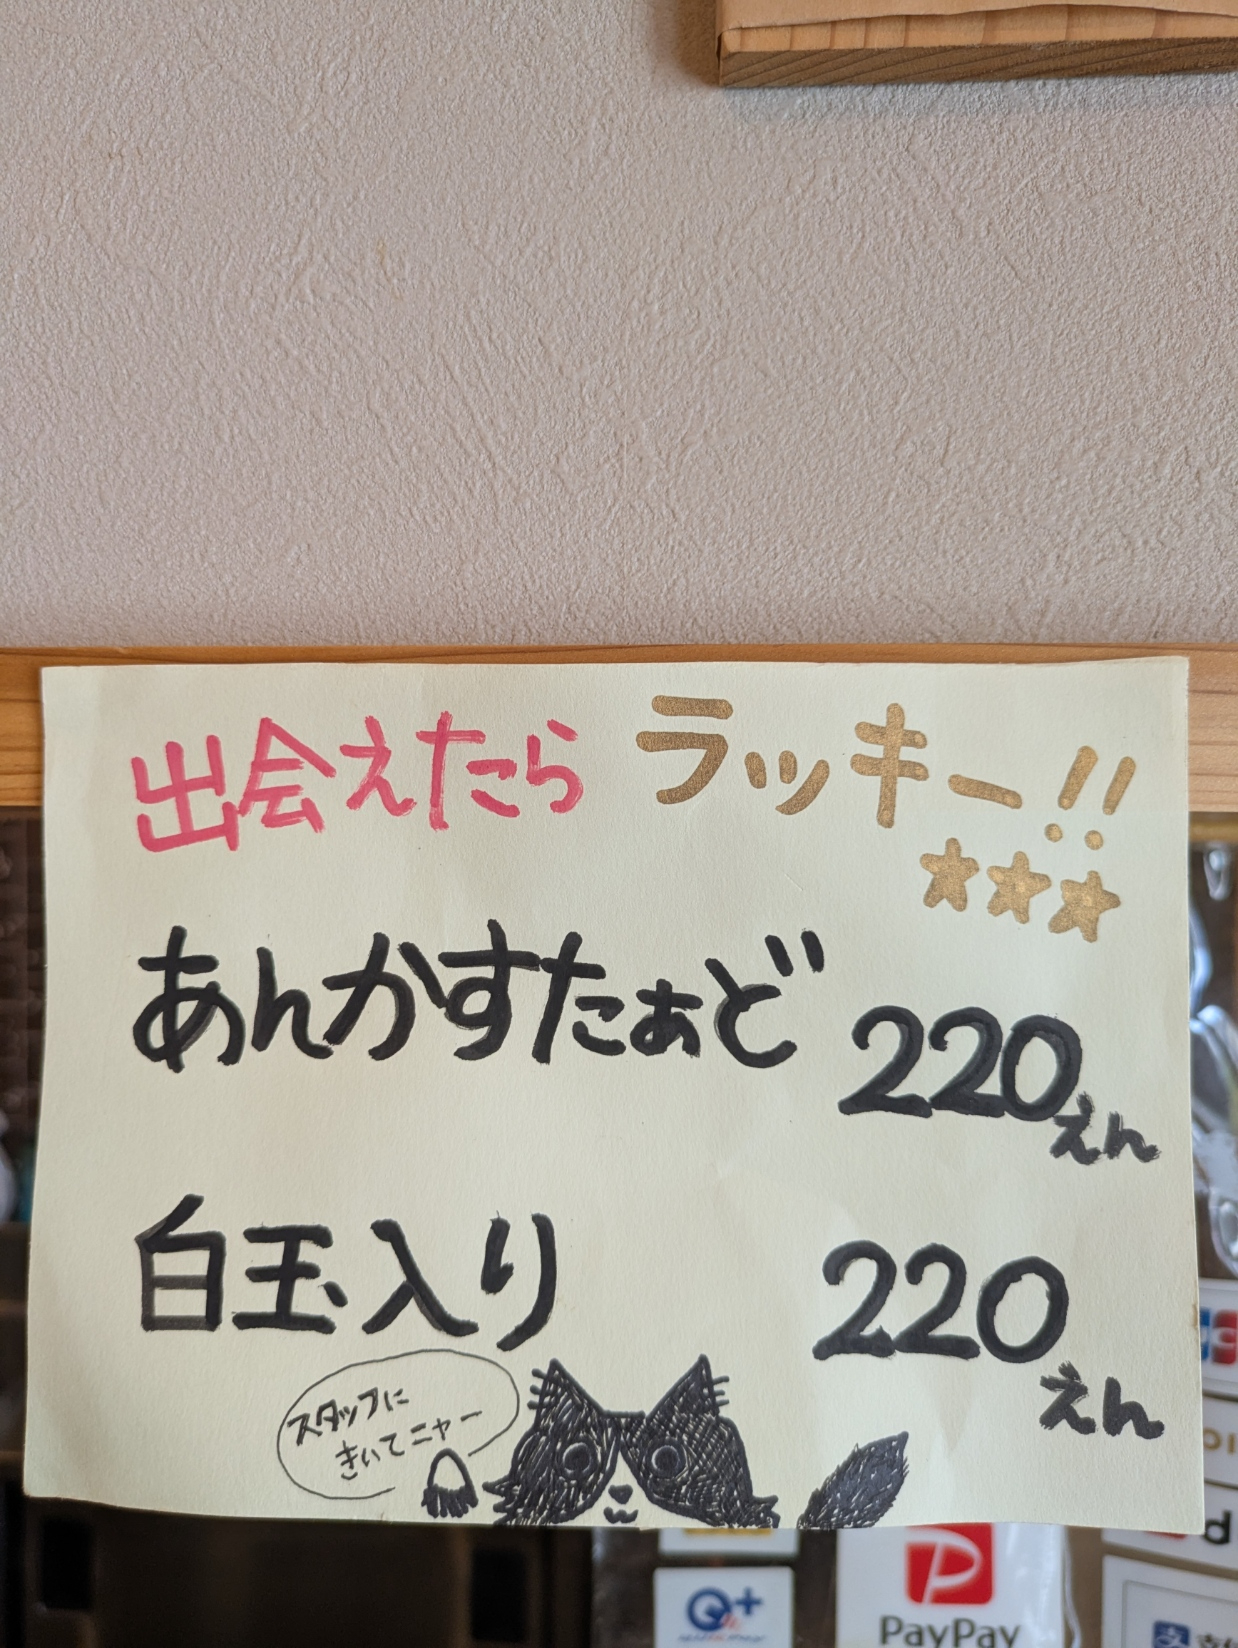 出会えたら ラッキー!!
★★★
あんかすたぁど 220えん
白玉入り 220えん
スタッフに
きいてニャー
Q+
PayPay
d